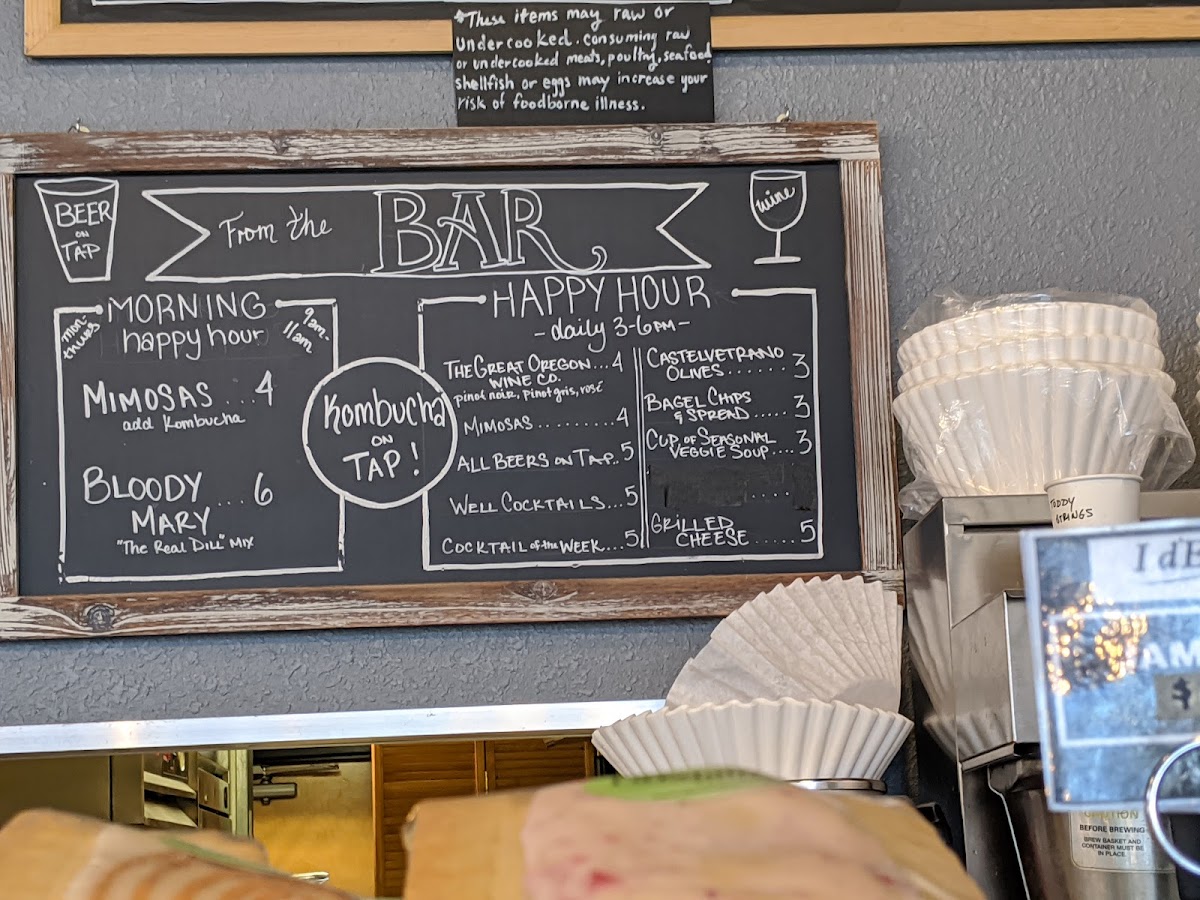 *These items may raw or
undercooked. consuming raw
or undercooked meats, poultry, seafood
shellfish or eggs may increase your
risk of foodborne illness.
BEER
ON
TAP
From the BAR
wine
MORNING
happy hour
mon-
thurs
9am-
11am
MIMOSAS ...4
add Kombucha
BLOODY ....6
MARY
"The Real Dill" MIX
Kombucha
ON
TAP!
HAPPY HOUR
-daily 3-6PM-
THE GREAT OREGON...4
WINE CO.
pinot noir, pinot gris, rosé
MIMOSAS.........4
ALL BEERS ON TAP..5
WELL COCKTAILS...5
COCKTAIL of the WEEK...5
CASTELVETRANO
OLIVES......3
BAGEL CHIPS
& SPREAD.....3
CUP OF SEASONAL
VEGGIE SOUP....3
....
GRILLED
CHEESE.....5
TODDY
STRINGS
$
CAUTION
BEFORE BREWING
BREW BASKET AND
CONTAINER MUST BE
IN PLACE